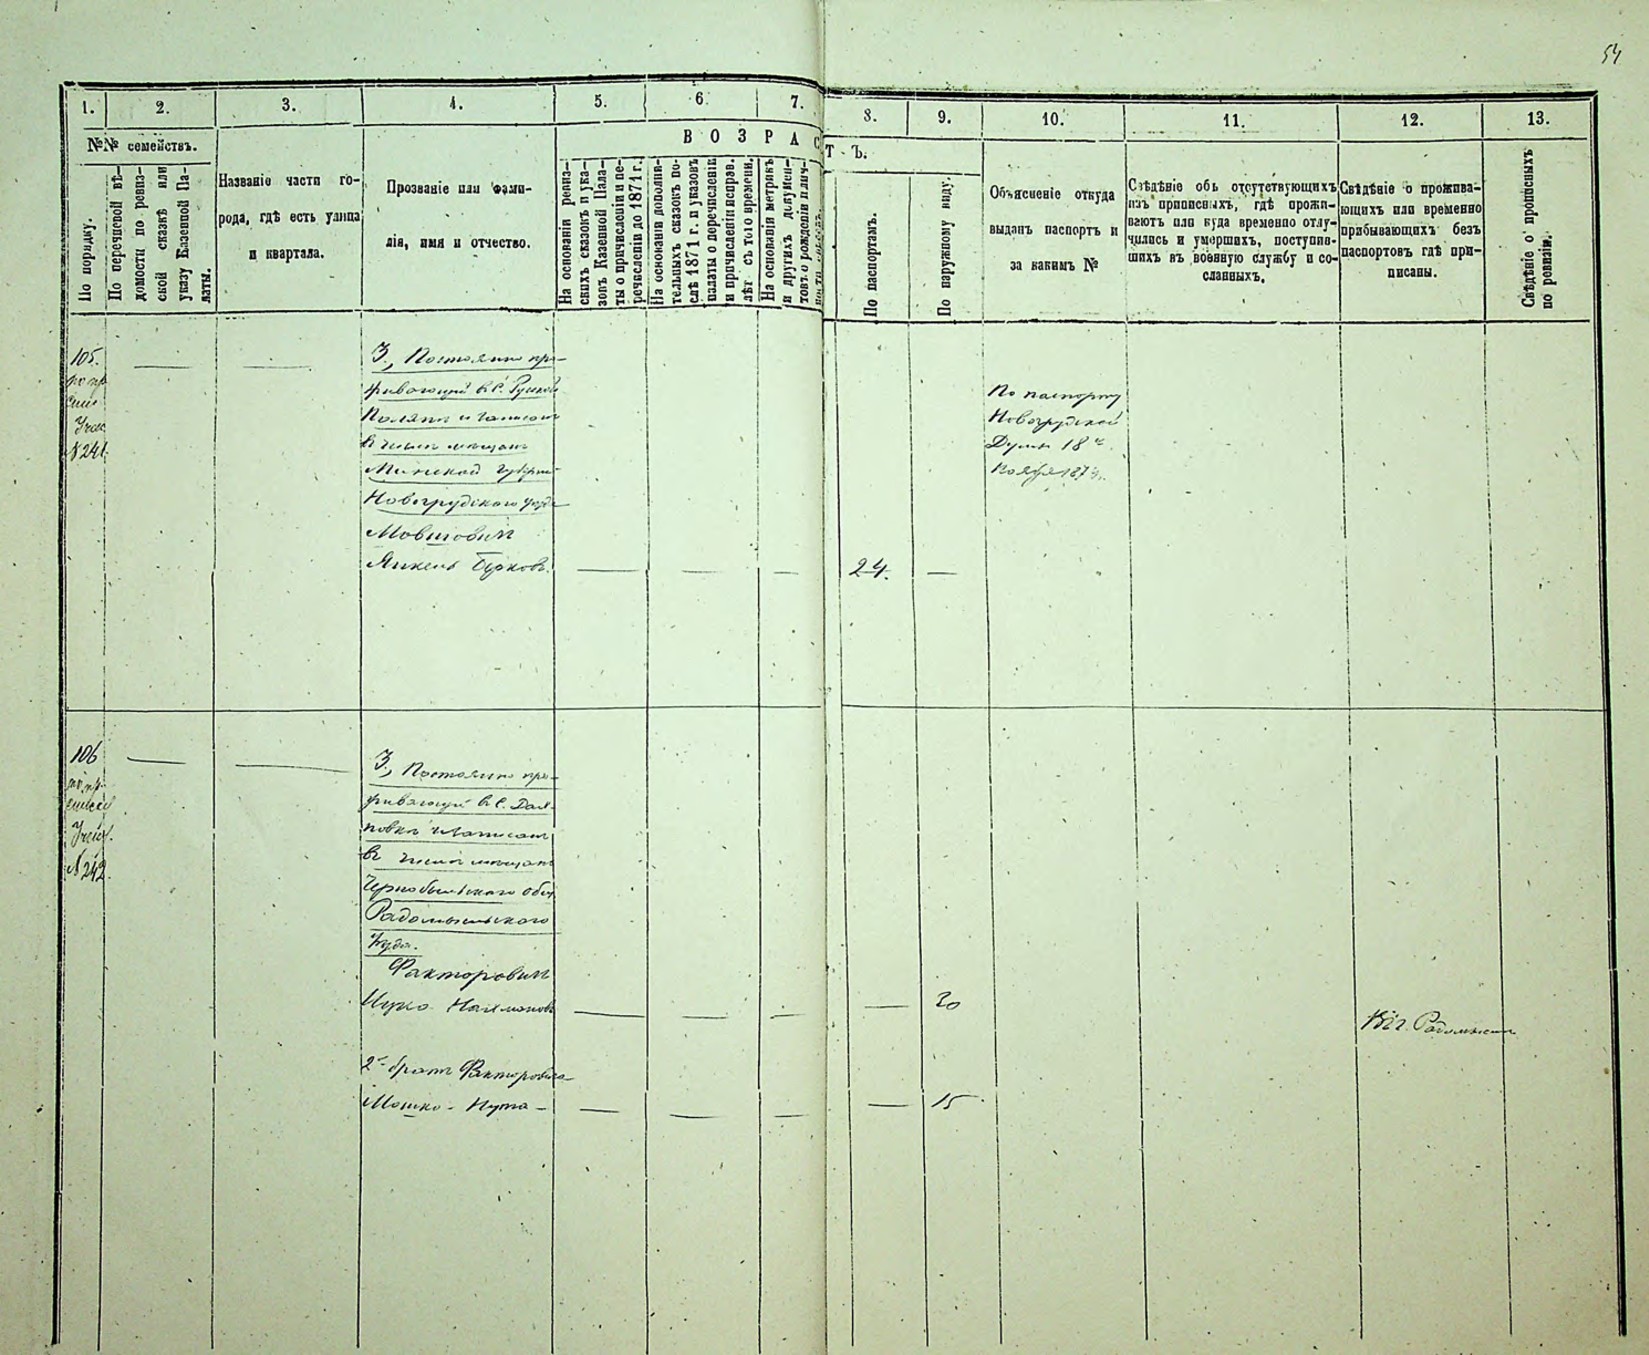 54
1.
2.
3.
4.
5.
6.
7.
8.
9.
10.
11.
12.
13.
№№ семействъ.
В О З Р А С
Т Ъ.
По порядку.
По перечневой вѣ-
домости по ревиз-
ской сказкѣ или
указу Казенной Па-
латы.
Названіе части го-
рода, гдѣ есть улица
и квартала.
Прозваніе или фами-
лія, имя и отчество.
На основаніи ревиз-
скихъ сказокъ и ука-
зовъ Казенной Пала-
ты о причисленіи и пе-
речисленіи до 1871 г.
На основаніи дополни-
тельныхъ сказокъ по-
слѣ 1871 г. и указовъ
палаты о перечисленіи
и причисленіи исправ.
лѣт съ того времени.
На основаніи метрикъ
и другихъ докумен-
товъ о рожденіи и лич-
По паспортамъ.
По наружному виду.
Объясненіе откуда
выданъ паспортъ и
за какимъ №
Свѣдѣніе объ отсутствующихъ
изъ приписныхъ, гдѣ прожи-
ваютъ или куда временно отлу-
чились и умершихъ, поступив-
шихъ въ военную службу и со-
сланныхъ.
Свѣдѣніе о прожива-
ющихъ или временно
прибывающихъ безъ
паспортовъ гдѣ при-
писаны.
Свѣдѣніе о прописныхъ
по ревизіи.
105.
№ 241
3, Постоянно про-
живающій въ с. Рудней
Поляны и записан
въ числѣ мѣщанъ
Минской Губерніи
Новогрудского уѣзда
Мовшовичъ
Янкель Берковъ.
24.
По паспорту
Новогрудской
Думы 18
Ноября 187
106
№ 242.
3, Постоянно про-
живающій въ с.
новка и записанъ
въ числѣ мѣщанъ
Чернобыльскаго общ
Радомысльского
уѣзда.
Факторовичъ
Ицко Нахмановъ
20
Въ г. Радомыслѣ
2й братъ Факторовича
Мошко-Нута
15